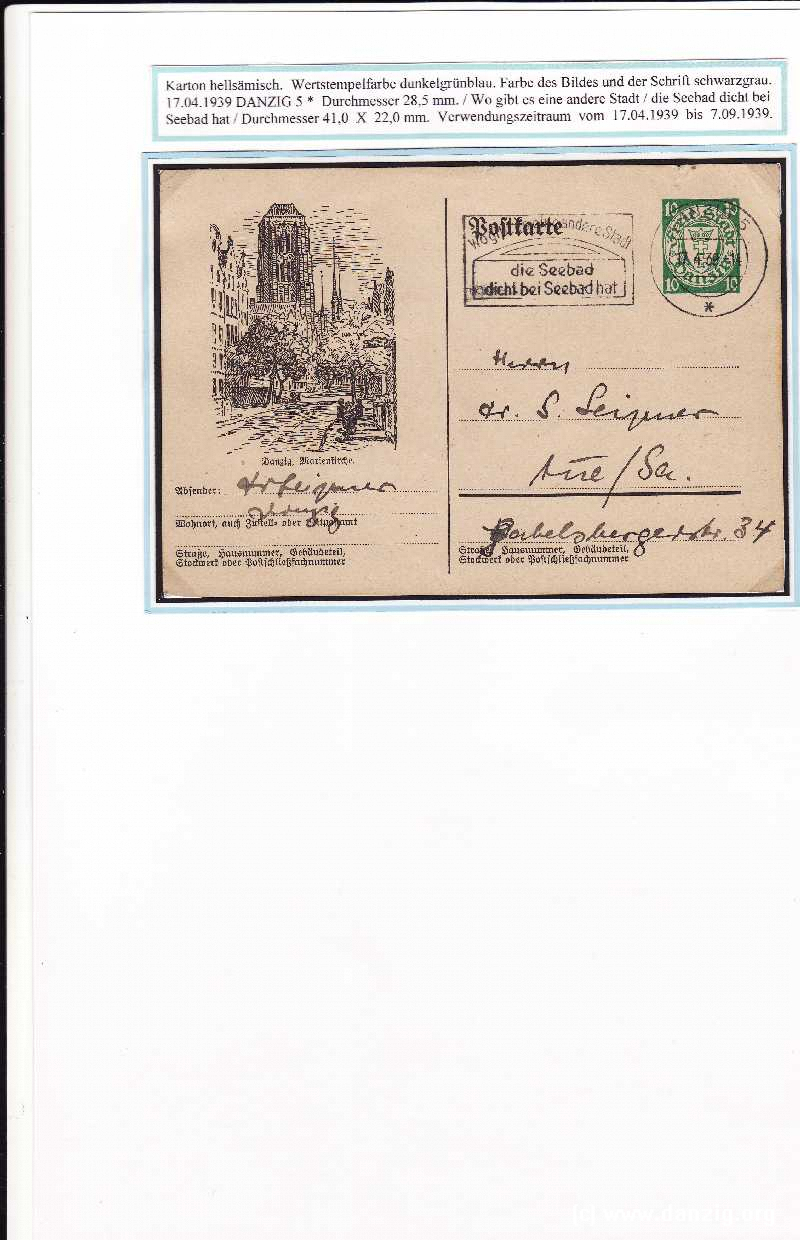 Karton hellsämisch. Wertstempelfarbe dunkelgrünblau. Farbe des Bildes und der Schrift schwarzgrau.
17.04.1939 DANZIG 5 * Durchmesser 28,5 mm. / Wo gibt es eine andere Stadt / die Seebad dicht bei
Seebad hat / Durchmesser 41,0 X 22,0 mm. Verwendungszeitraum vom 17.04.1939 bis 7.09.1939.
Postkarte
Wo gibt andere Stadt
die Seebad
dicht bei Seebad hat
10 10
Freie Stadt
Danzig
10 10
5
*
Herrn
Dr. S. Leizner
Aue/Sa.
Gabelsbergerstr. 34
Straße, Hausnummer, Gebäudeteil,
Stockwerk oder Postschließfachnummer
Danzig, Marienkirche.
Absender: Dr Leizner
Danzig
Wohnort, auch Zustell- oder Leitpostamt
Straße, Hausnummer, Gebäudeteil,
Stockwerk oder Postschließfachnummer
(c) www.danzig.org